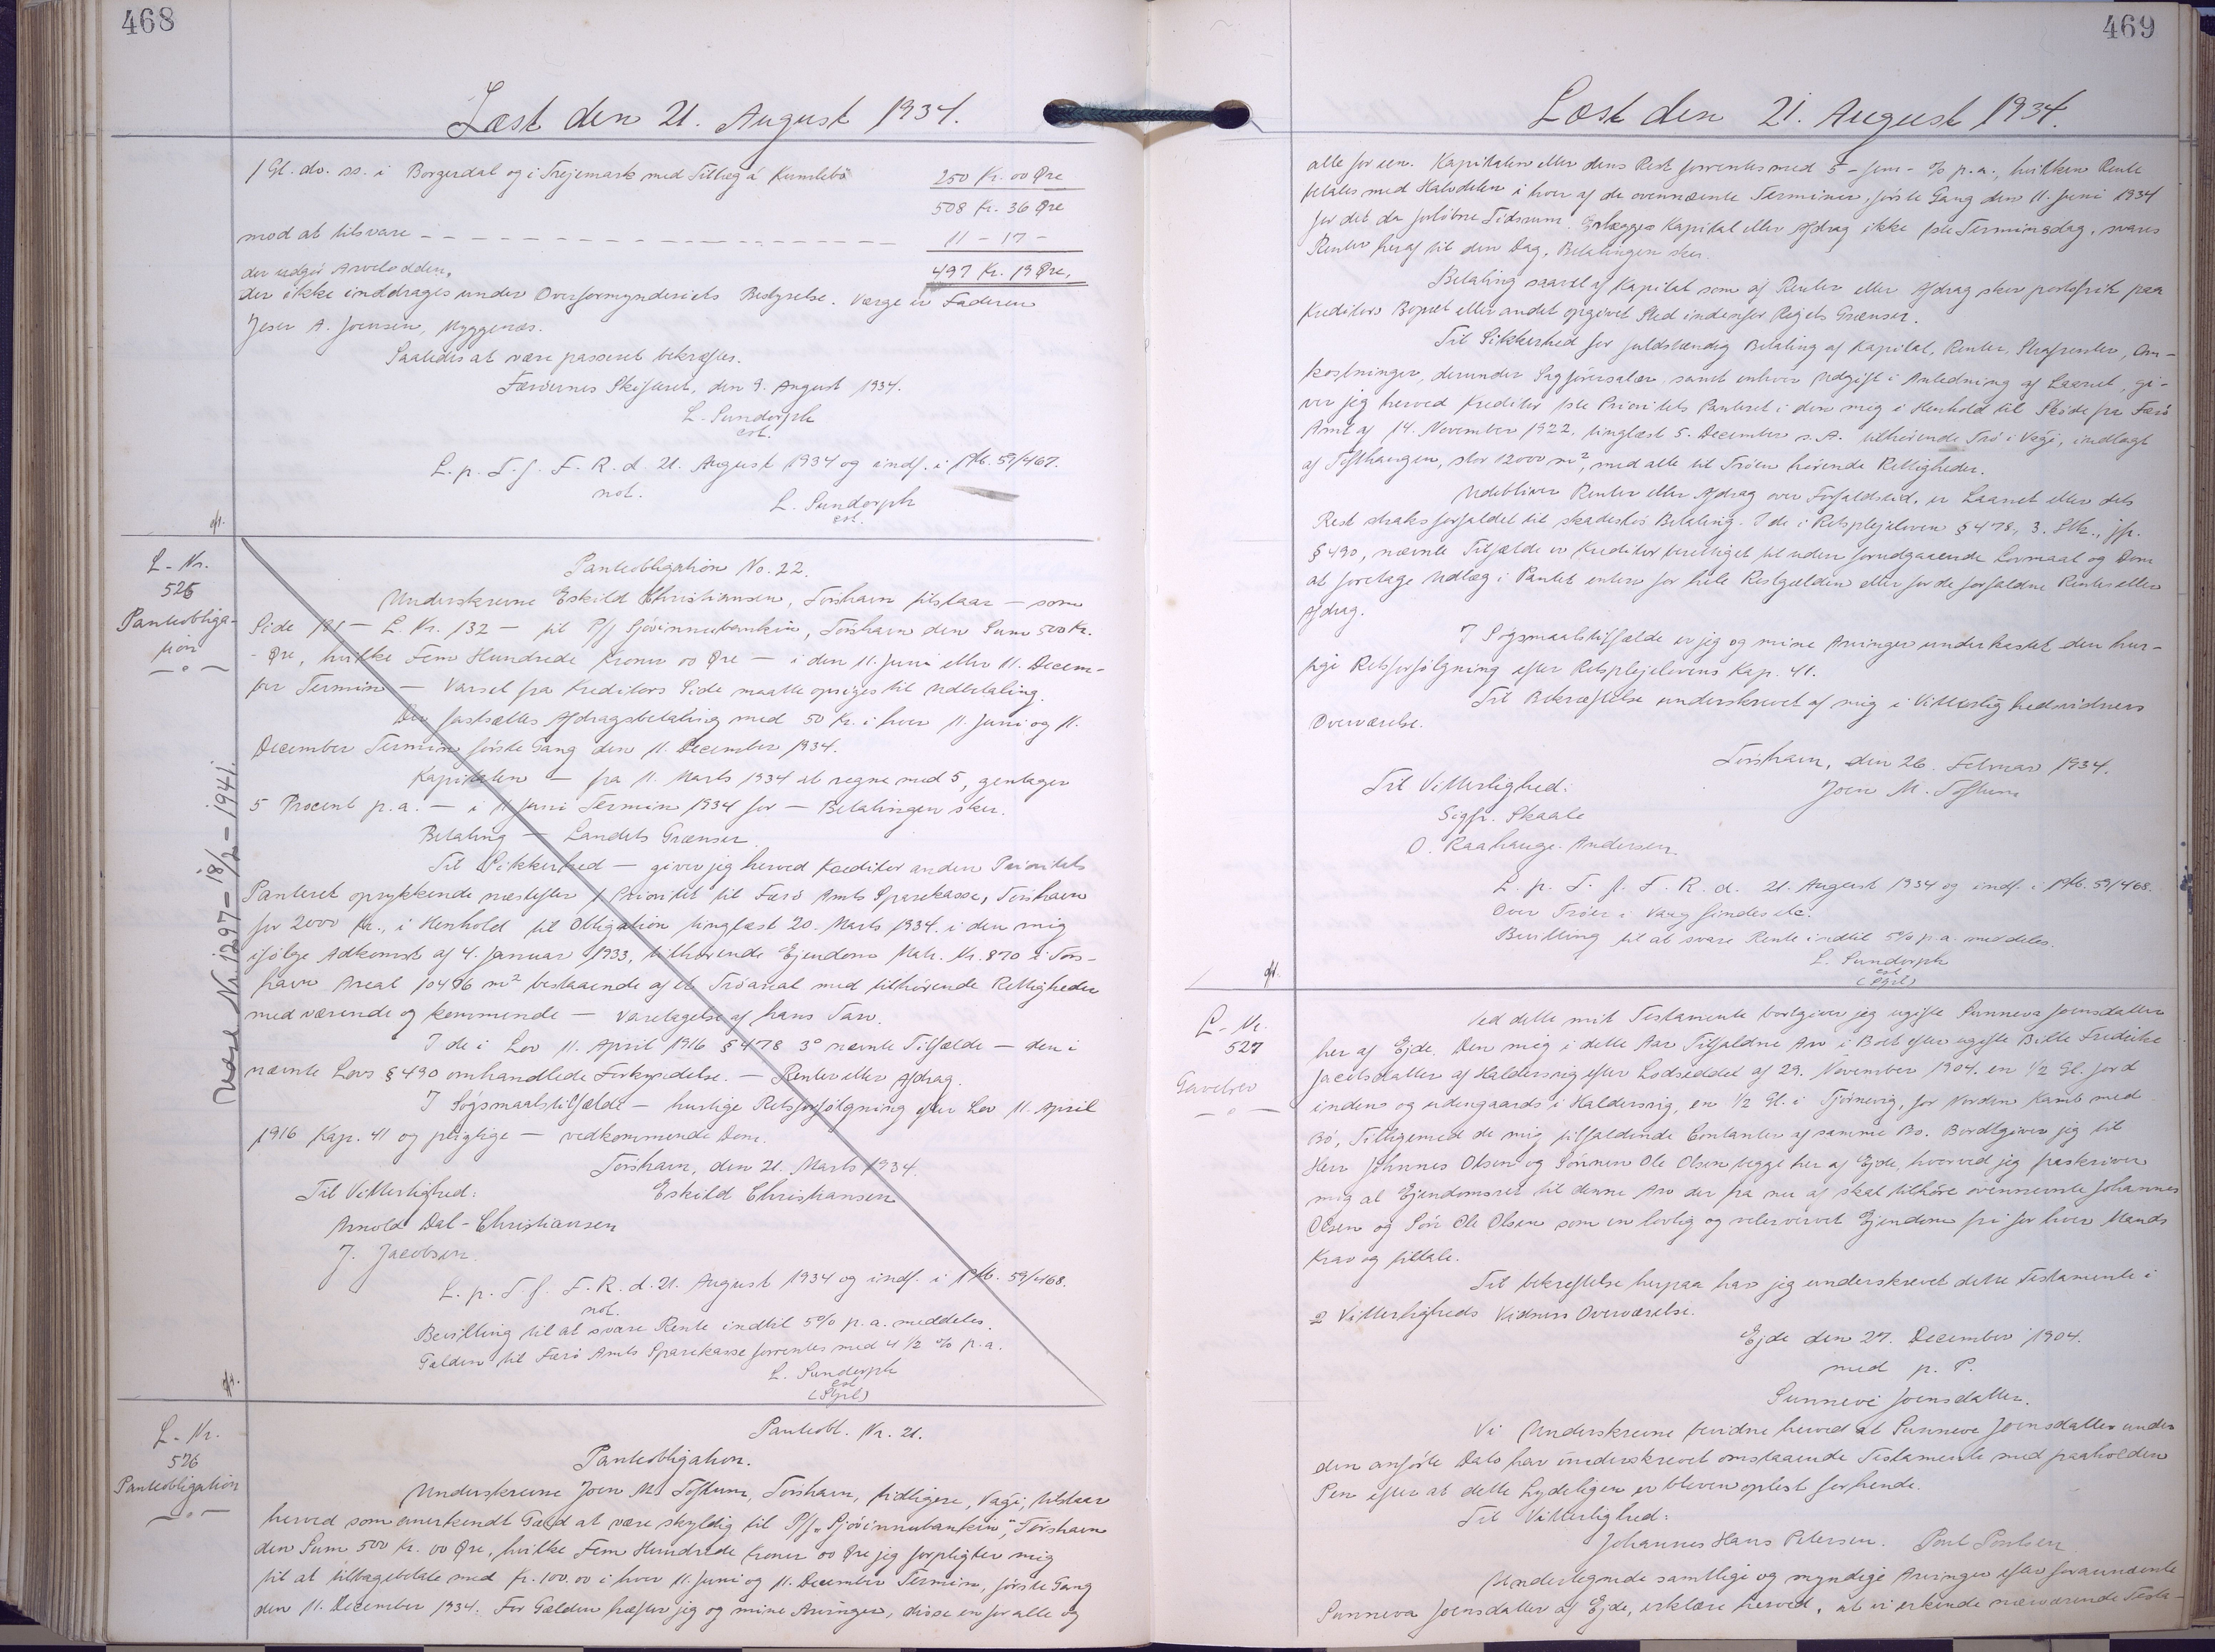 468
Læst den 21. August 1934.
1 Gl. do. ss. i Borgerdal og i Trejemark med Tillæg á Kumlebö 250 Kr. 00 Øre
508 Kr. 36 Øre
mod at tilsvare 11 - 17 -
der udgör Arvelodden, 497 Kr. 19 Øre,
der ikke inddrages under Overformynderiets Bestyrelse. Værge er Faderen
A. Joensen, Myggenæs.
Saaledes at være passeret bekræftes.
Færöernes Skifteret, den 9. August 1934.
L. Sundorph
cst.
L. p. T. f. F. R. d. 21. August 1934 og indf. i Ptb. 59/467.
not.
L. Sundorph
cst.
L. Nr.
525
Pantobliga-
tion
Panteobligation No. 22.
Underskrevne Eskild Christiansen, Torshavn tilstaar — som
Side 181 — L. Nr. 132 — til P/f Sjóvinnubankin, Torshavn den Sum 500 Kr.
- Øre, hvilke Fem Hundrede Kroner 00 Øre — i den 11. Juni eller 11. Decem-
ber Termin — Varsel fra Kreditors Side maatte opsiges til Udbetaling.
Der fastsættes Afdragsbetaling med 50 Kr. i hver 11. Juni og 11.
December Termin förste Gang den 11. December 1934.
Kapitalen — fra 11. Marts 1934 at regne med 5, gentager
5 Procent p.a. — i 11 Juni Termin 1934 for — Betalingen sker.
Betaling — Landets Grænser.
Til Sikkerhed — giver jeg herved Kreditor anden Prioritets
Panteret oprykkende næstefter 1 Prioritet til Færö Amts Sparekasse, Torshavn
for 2000 Kr., i Henhold til Obligation tinglæst 20. Marts 1934. i den mig
ifölge Adkomst af 4. Januar 1933, tilhörende Ejendom Matr. Nr. 870 i Tors-
havn Areal m² bestaaende af et Tröareal med tilhörende Rettigheder
med værende og kommende — Varetagelse af hans Tarv.
I de i Lov 11. April 1916 § 478 3° nævnte Tilfælde — den i
nævnte Lovs § 490 omhandlede Forkyndelse. — Renter eller Afdrag.
I Sögsmaalstilfælde — hurtige Retsforfölgning efter Lov 11. April
1916 Kap. 41 og pligtige — vedkommende Dom.
Torshavn, den 21. Marts 1934.
Til Vitterlighed: Eskild Christiansen
Arnold Dal-Christiansen
J. Jacobsen.
L. p. T. f. F. R. d. 21. August 1934 og indf. i Ptb. 59/468.
not.
Bevilling til at svare Rente indtil 5% p.a. meddeles.
Gælden til Færö Amts Sparekasse forrentes med 4 1/2 % p.a.
L. Sundorph
cst
Nr. 1297 - 18/2 - 1941.
L. Nr.
526
Panteobligation
Panteobl. Nr. 21.
Panteobligation.
Underskrevne Joen M. Toftum, Torshavn, tidligere, Vági, tilstaar
herved som anerkendt Gæld at være skyldig til P/f „Sjóvinnubankin”, Torshavn
den Sum 500 Kr. 00 Øre, hvilke Fem Hundrede Kroner 00 Øre jeg forpligter mig
til at tilbagebetale med Kr. 100.00 i hver 11. Juni og 11. December Termin, förste Gang
den 11. December 1934. For Gælden hæfter jeg og mine Arvinger, disse en for alle og
469
Læst den 21. August 1934.
alle for een. Kapitalen eller dens Rest forrentes med 5 - fem - % p.a., hvilken Rente
betales med Halvdelen i hver af de ovennævnte Terminer, förste Gang den 11. Juni 1934
for det da forlöbne Tidsrum. Erlægges Kapital eller Afdrag ikke 1ste Terminsdag, svares
Renter heraf til den Dag, Betalingen sker.
Betaling saavel af Kapital som af Renter eller Afdrag sker portofrit paa
Kreditors Bopæl eller andet opgivet Sted indenfor Rigets Grænser.
Til Sikkerhed for fuldstændig Betaling af Kapital, Renter, Strafrenter, Om-
kostninger, derunder Sagförersalær, samt enhver Udgift i Anledning af Laanet, gi-
ver jeg herved Kreditor 1ste Prioritets Panteret i den mig i Henhold til Sköde fra Færö
Amt af 14. November 1922, tinglæst 5. December s.A. tilhörende Trö i Vági, indlagt
af Tofthaugen, stor 12000 m², med alle til Tröen hörende Rettigheder.
Udebliver Renter eller Afdrag over Forfaldstid, er Laanet eller dets
Rest straks forfaldet til skadeslös Betaling. I de i Retsplejeloven § 478, 3. Stk., jfr.
§ 490, nævnte Tilfælde er Kreditor berettiget til uden forudgaaende Lovmaal og Dom
at foretage Udlæg i Pantet enten for hele Restgælden eller for de forfaldne Renter eller
Afdrag.
I Sögsmaalstilfælde er jeg og mine Arvinger underkastet den hur-
tige Retsforfölgning efter Retsplejelovens Kap. 41.
Til Bekræftelse underskrevet af mig i Vitterlighedsvidners
Overværelse.
Torshavn, den 26. Februar 1934.
Til Vitterlighed: Joen M. Toftum
Sigfr. Skaale
O. Raahauge-Andersen
L. p. T. f. F. R. d. 21. August 1934 og indf. i Ptb. 59/468.
Over Tröer i Vaag findes etc.
Bevilling til at svare Rente indtil 5% p.a. meddeles.
L. Sundorph
cst
L. Nr.
527
Gavebrev
Ved dette mit Testamente bortgiver jeg ugifte Sunneva Joensdatter
her af Ejde. Den mig i dette Aar Tilfaldne Arv i Boet efter ugifte Bitte Fredrike
Jacobsdatter af Haldersvig efter Lodseddel af 29. November 1904. en 1/2 Gl. Jord
indens og udengaards i Haldersvig, en 1/2 Gl. i Tjörnevig, for Norden Kamb med
Bö, Tilligemed de mig tilfaldende Contanter af samme Bo. Bordtgiver jeg til
Herr Johnnes Olsen og Sönnen Ole Olsen begge her af Ejde, hvorved jeg fraskriver
mig al Ejendomsret til denne Arv der fra nu af skal tilhöre ovennævnte Johannes
Olsen og Sön Ole Olsen som en lovlig og velervervet Ejendom fri for hver Mands
Krav og tiltale.
Til bekreftelse herpaa har jeg underskrevet dette Testamente i
2 Vitterligheds Vidners Overværelse.
Ejde den 27. December 1904.
med p. P.
Sunneve Joensdatter.
Vi Underskrevne bevidne herved at Sunneve Joensdatter under
den anförte Dato har underskrevet omstaaende Testamente med paaholden
Pen efter at dette Lydeligen er bleven oplest for hende.
Til Vitterlighed:
Johannes Hans Petersen. Poul Poulsen
Undertegnede samtlige og myndige Arvinger efter forannævnte
Sunneva Joensdatter af Ejde, erklære herved, at vi erkende nærværende Testa-